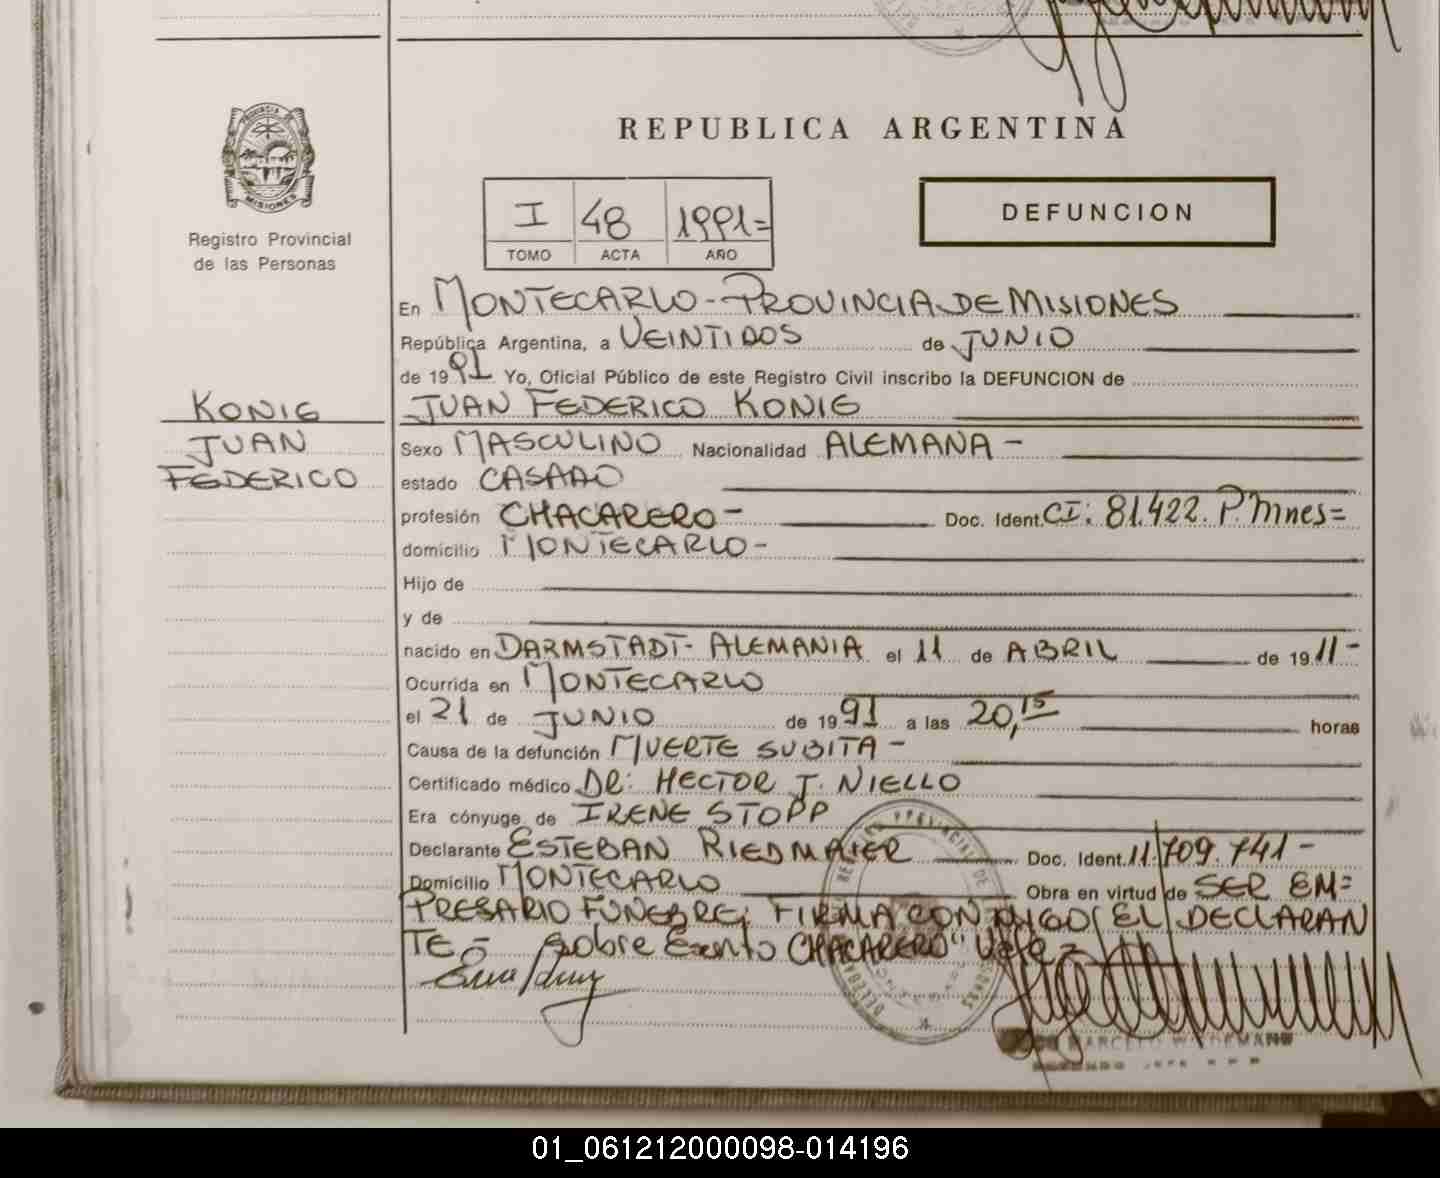 PROVINCIA DE
MISIONES
Registro Provincial
de las Personas
REPUBLICA ARGENTINA
I 48 1991=
TOMO ACTA AÑO
DEFUNCION
En MONTECARLO - PROVINCIA DE MISIONES
República Argentina, a VEINTIDOS de JUNIO
de 1991 Yo, Oficial Público de este Registro Civil inscribo la DEFUNCION de
KONIG
JUAN
FEDERICO
JUAN FEDERICO KONIG
Sexo MASCULINO Nacionalidad ALEMANA -
estado CASADO
profesión CHACARERO - Doc. Ident. CI: 81.422. P. Mnes=
domicilio MONTECARLO -
Hijo de
y de
nacido en DARMSTADT - ALEMANIA el 11 de ABRIL de 1911 -
Ocurrida en MONTECARLO
el 21 de JUNIO de 1991 a las 20,15 horas
Causa de la defunción MUERTE SUBITA -
Certificado médico DR: HECTOR J. NIELLO
Era cónyuge de IRENE STOPP
Declarante ESTEBAN RIEDMAIER Doc. Ident. 11.709.741 -
Domicilio MONTECARLO Obra en virtud de SER EM=
PRESARIO FUNEBRE; FIRMA CONMIGO EL DECLARAN
TE - sobre CHACARERO" Vale -
REGISTRO PROVINCIAL DE PERSONAS
MARCELO WIDEMANN
01_061212000098-014196